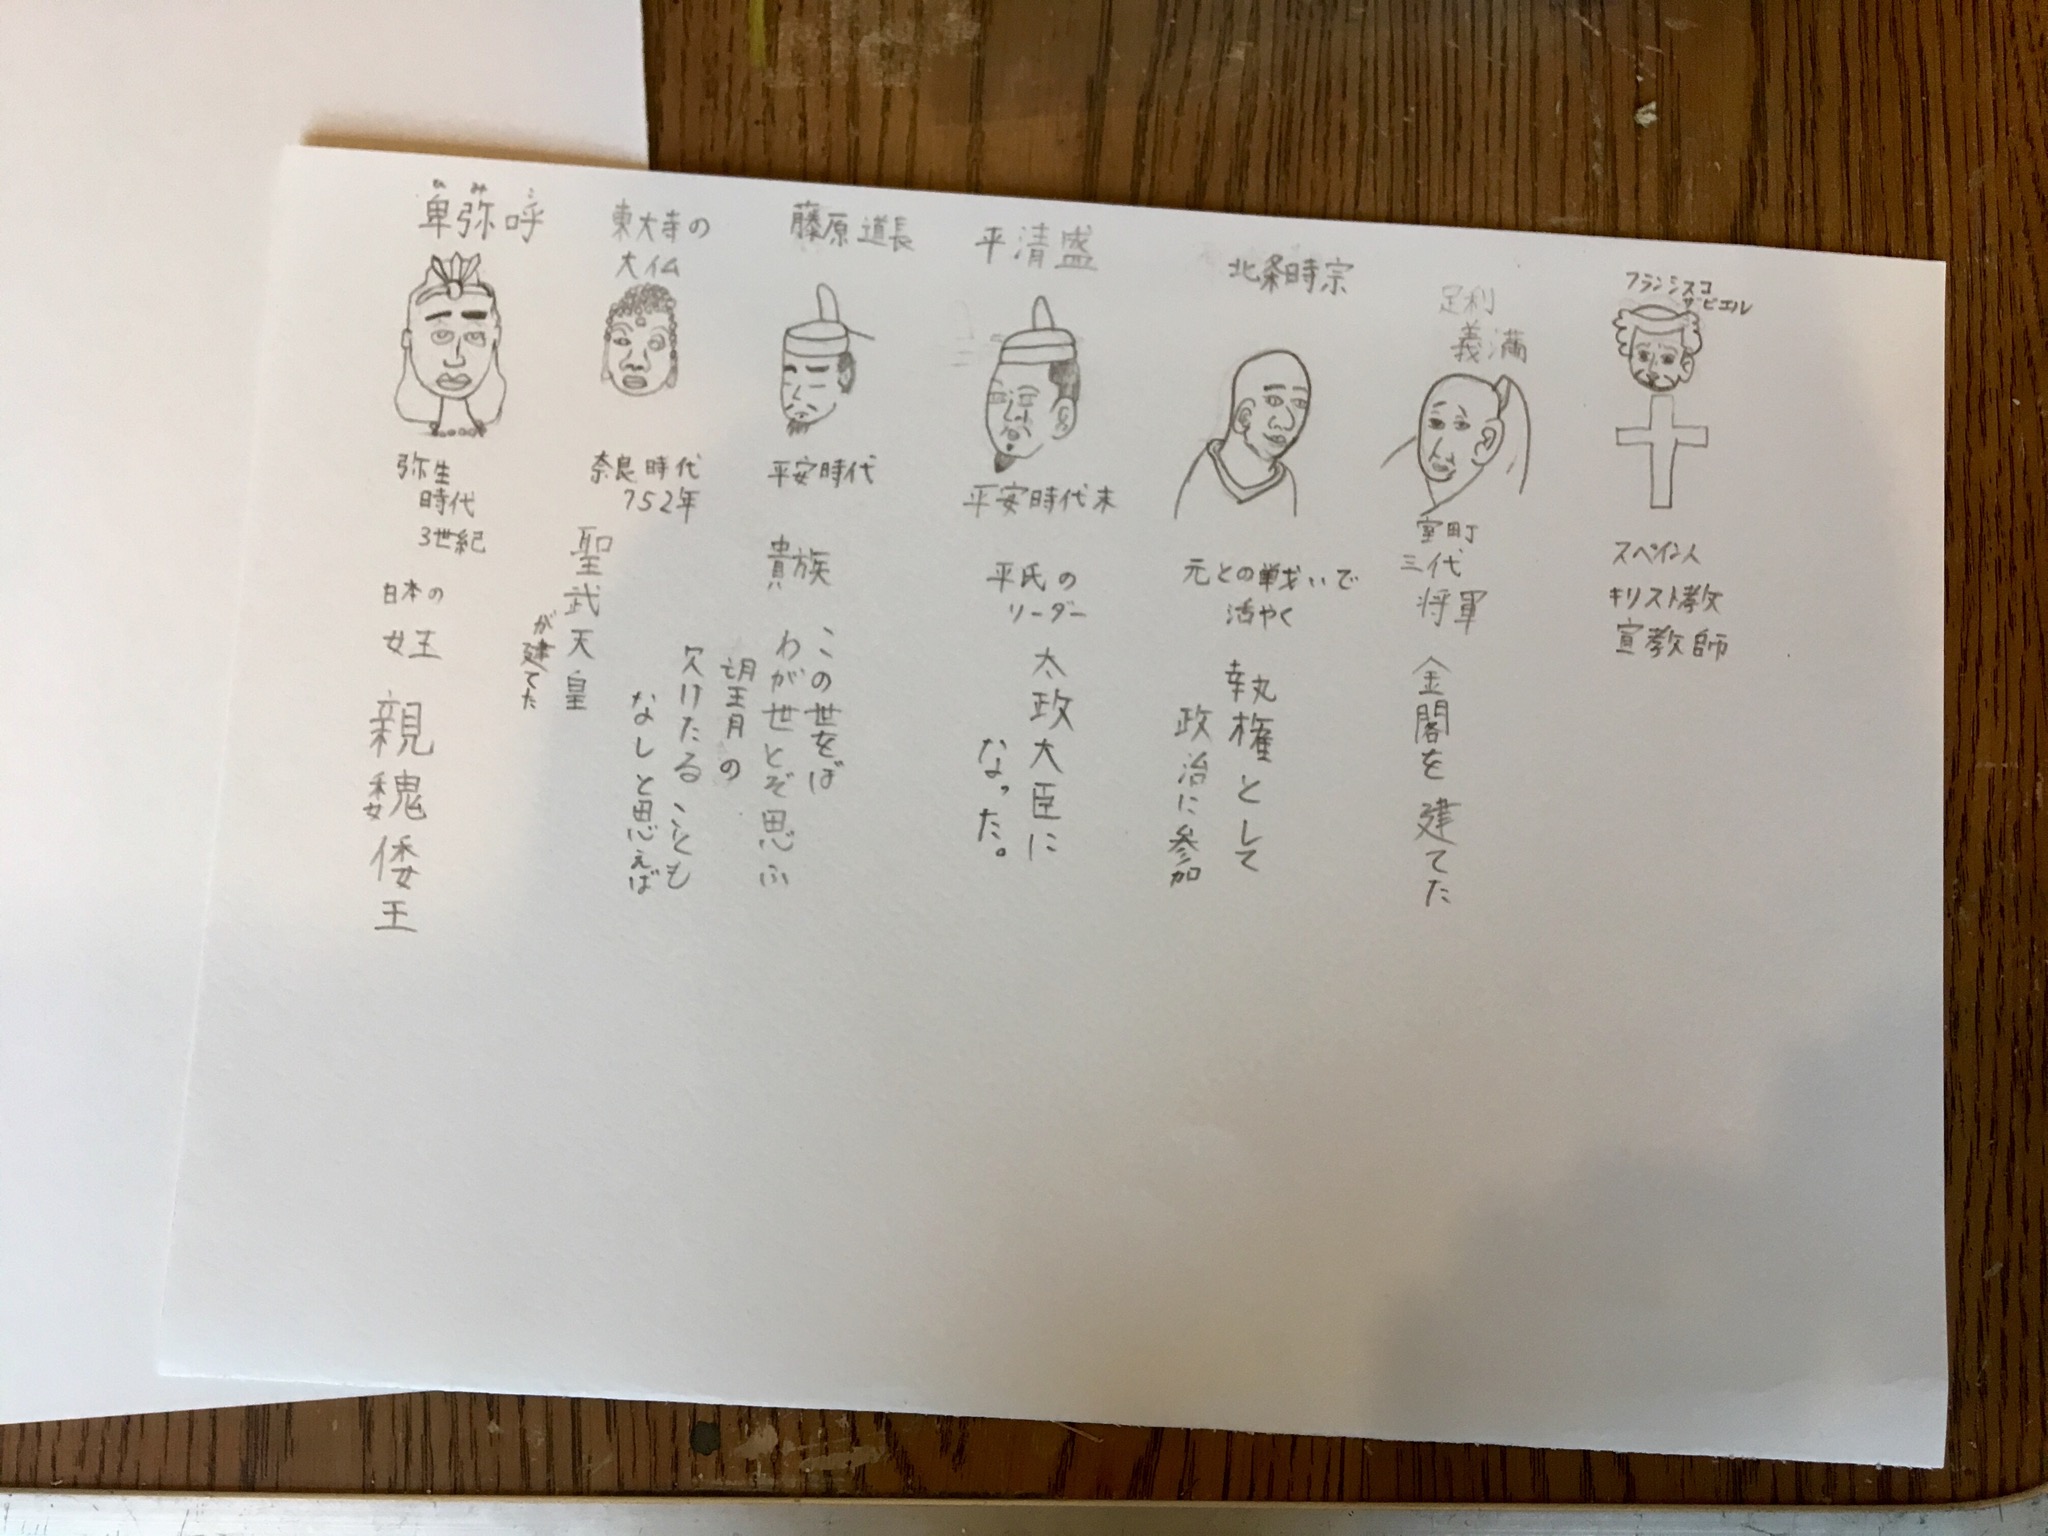 ひみこ
卑弥呼
弥生
時代
3世紀
日本の
女王
親魏倭王
東大寺の
大仏
奈良時代
752年
聖武天皇
が建てた
藤原道長
平安時代
貴族
この世をば
わが世とぞ思ふ
望月の
欠けたることも
なしと思えば
平清盛
平安時代末
平氏の
リーダー
太政大臣に
なった。
北条時宗
元との戦いで
活やく
執権として
政治に参加
足利
義満
室町
三代
将軍
金閣を建てた
フランシスコ
ザビエル
スペイン人
キリスト教
宣教師